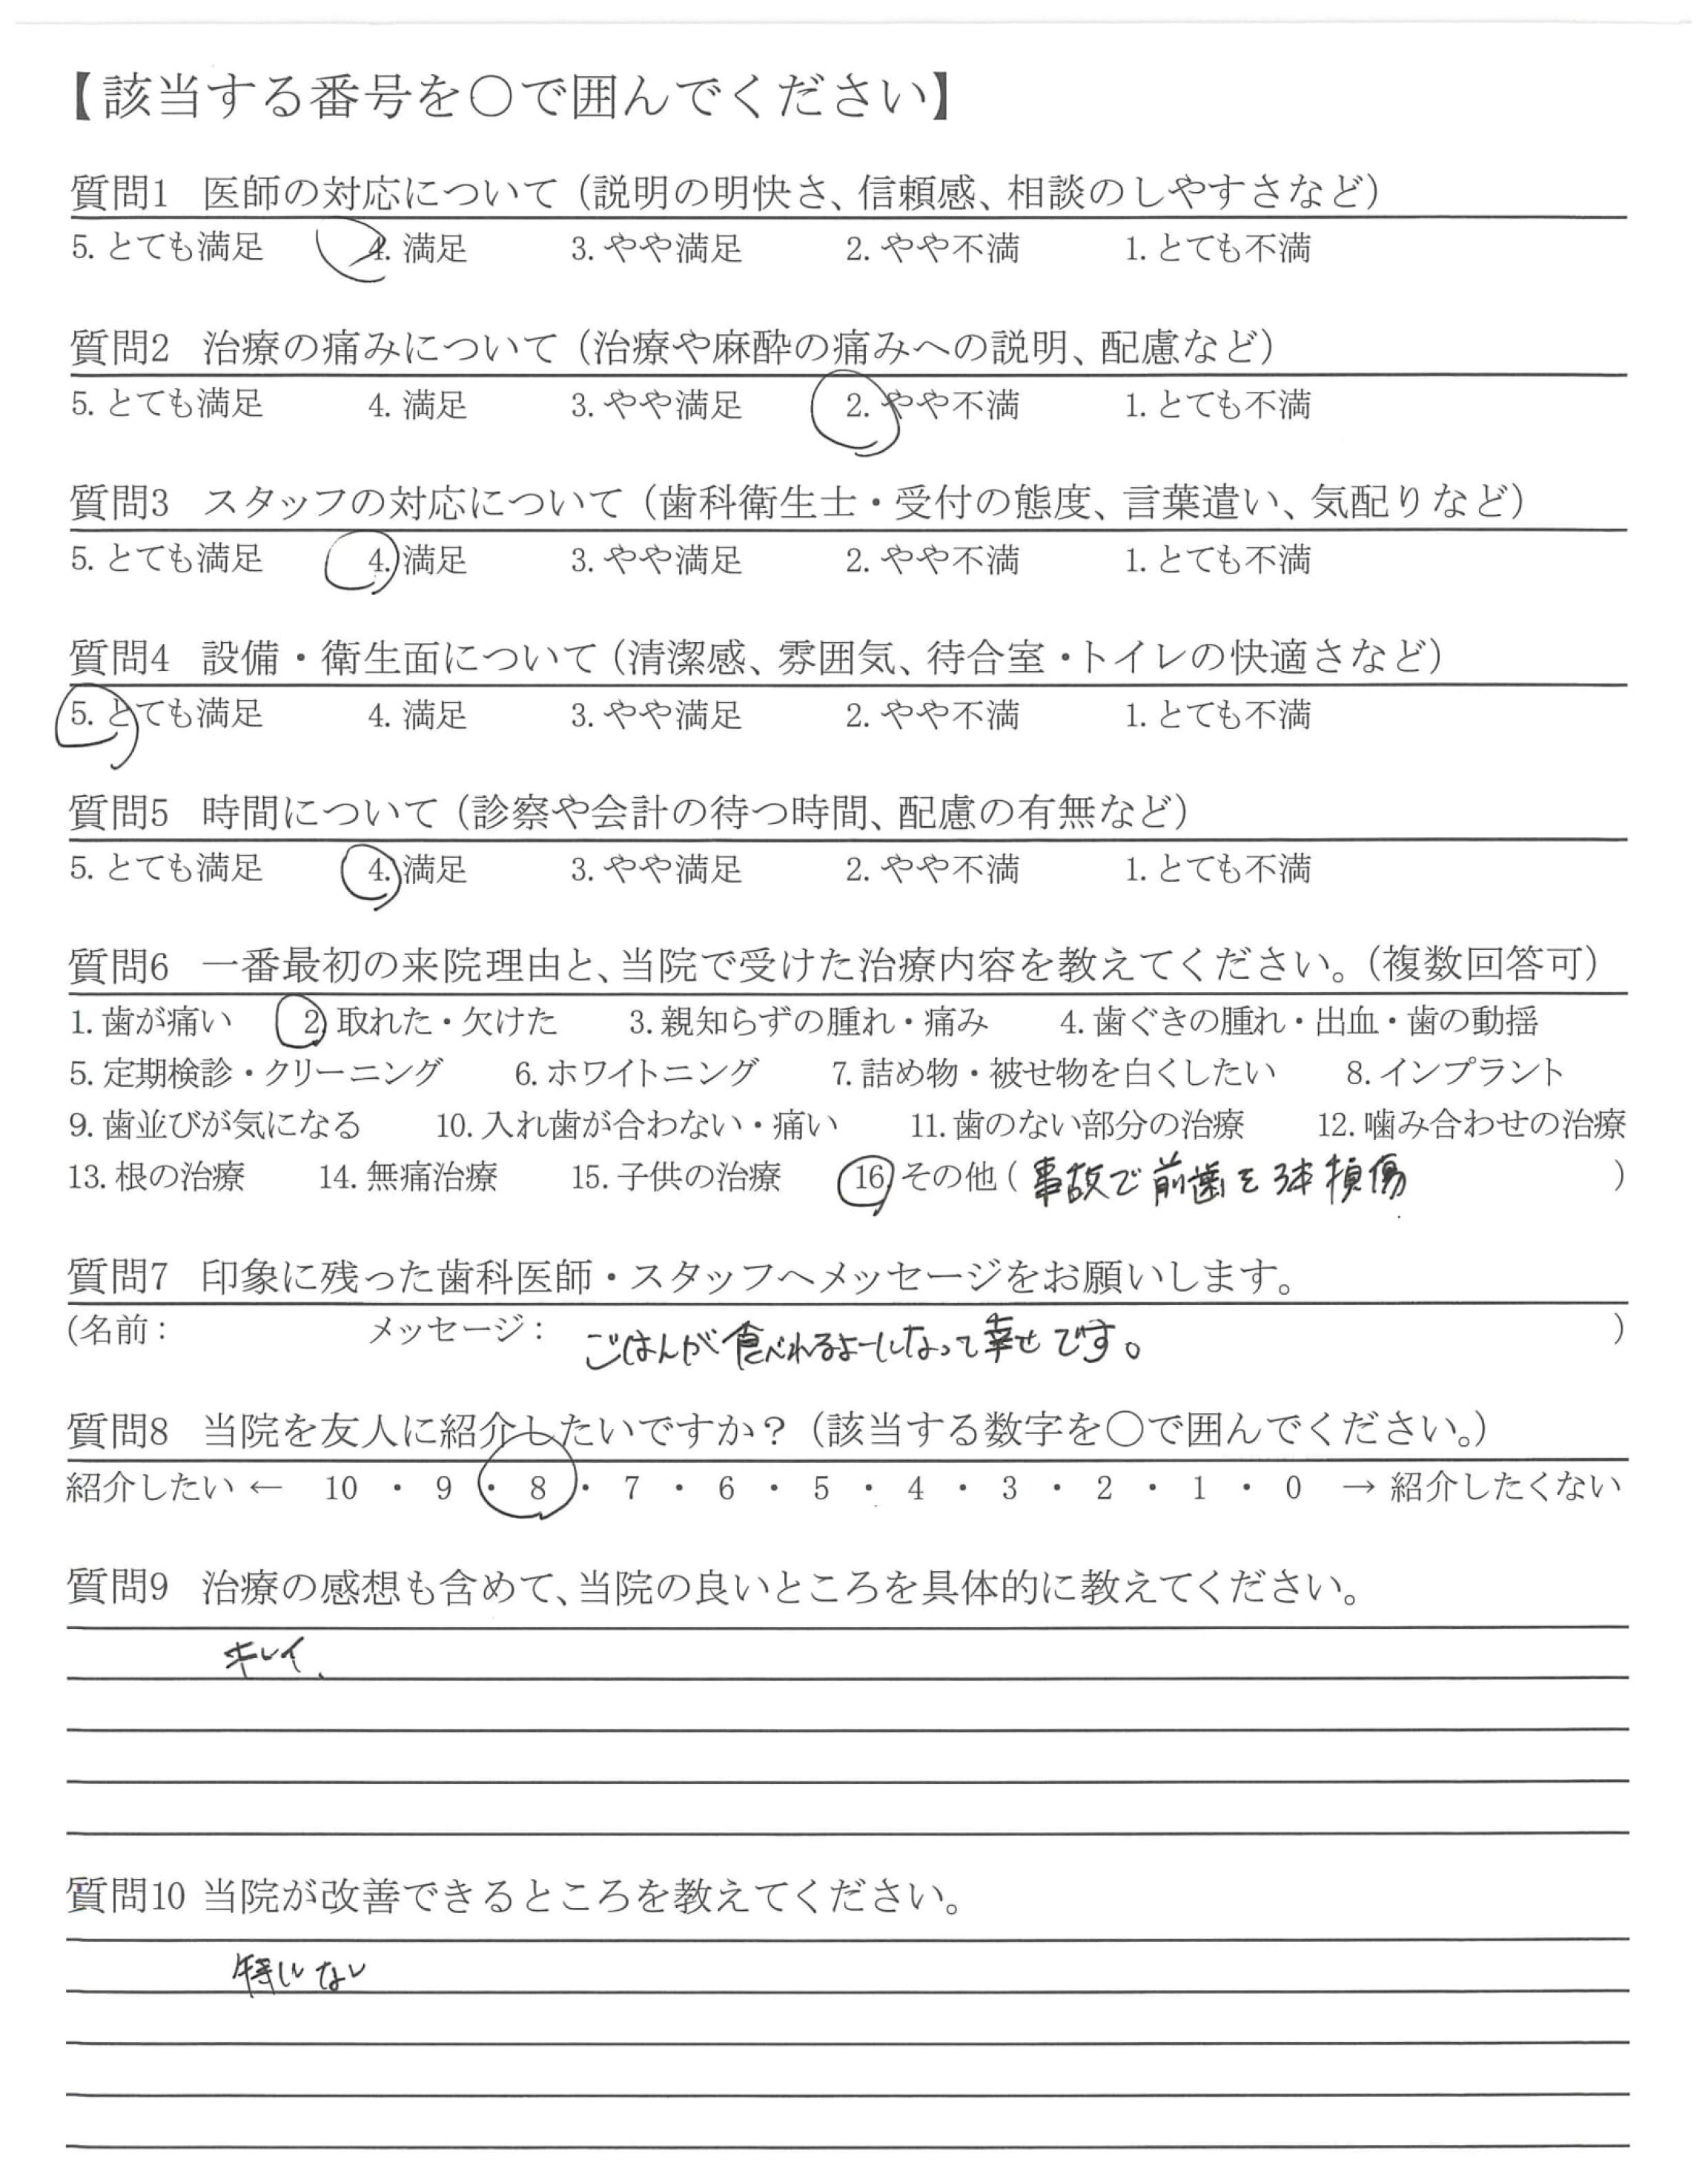 【該当する番号を○で囲んでください】
質問1 医師の対応について（説明の明快さ、信頼感、相談のしやすさなど）
5. とても満足 4. 満足 3. やや満足 2. やや不満 1. とても不満
質問2 治療の痛みについて（治療や麻酔の痛みへの説明、配慮など）
5. とても満足 4. 満足 3. やや満足 2. やや不満 1. とても不満
質問3 スタッフの対応について（歯科衛生士・受付の態度、言葉遣い、気配りなど）
5. とても満足 4. 満足 3. やや満足 2. やや不満 1. とても不満
質問4 設備・衛生面について（清潔感、雰囲気、待合室・トイレの快適さなど）
5. とても満足 4. 満足 3. やや満足 2. やや不満 1. とても不満
質問5 時間について（診察や会計の待つ時間、配慮の有無など）
5. とても満足 4. 満足 3. やや満足 2. やや不満 1. とても不満
質問6 一番最初の来院理由と、当院で受けた治療内容を教えてください。（複数回答可）
1. 歯が痛い 2. 取れた・欠けた 3. 親知らずの腫れ・痛み 4. 歯ぐきの腫れ・出血・歯の動揺
5. 定期検診・クリーニング 6. ホワイトニング 7. 詰め物・被せ物を白くしたい 8. インプラント
9. 歯並びが気になる 10. 入れ歯が合わない・痛い 11. 歯のない部分の治療 12. 噛み合わせの治療
13. 根の治療 14. 無痛治療 15. 子供の治療 16. その他（事故で前歯を3本損傷）
質問7 印象に残った歯科医師・スタッフへメッセージをお願いします。
（名前： メッセージ： ごはんが食べれるよーになって幸せです。）
質問8 当院を友人に紹介したいですか？（該当する数字を○で囲んでください。）
紹介したい ← 10 ・ 9 ・ 8 ・ 7 ・ 6 ・ 5 ・ 4 ・ 3 ・ 2 ・ 1 ・ 0 → 紹介したくない
質問9 治療の感想も含めて、当院の良いところを具体的に教えてください。
キレイ、
質問10 当院が改善できるところを教えてください。
特にない